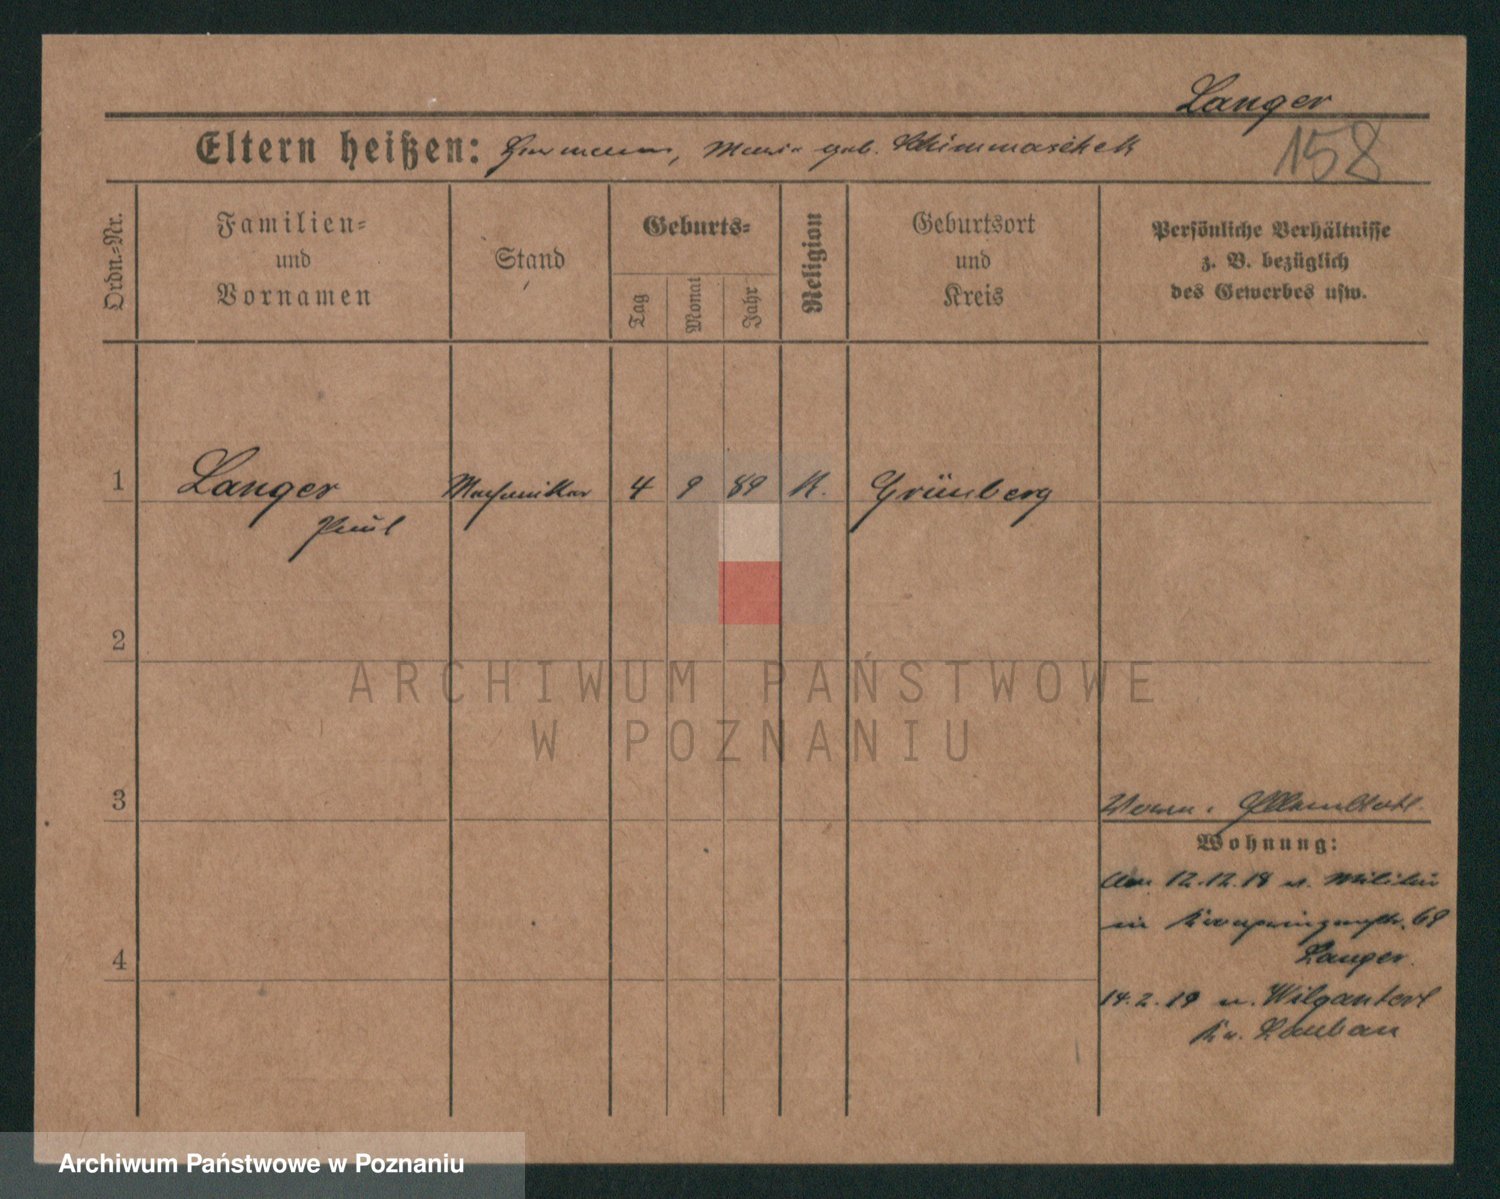 Langer
158
Eltern heißen: Hermann, Maria geb. Schimmaschek
Ordn.-Nr.
Familien-
und
Vornamen
Stand
Geburts-
Tag
Monat
Jahr
Religion
Geburtsort
und
Kreis
Persönliche Verhältnisse
z. B. bezüglich
des Gewerbes usw.
1
Langer
Paul
Mechaniker
4
9
89
K.
Grünberg
2
ARCHIWUM PAŃSTWOWE
W POZNANIU
3
Wohnung:
12.12.18 v. Militär
in Kronprinzenstr. 69
Langer.
4
14.2.19 n.
Kr. Lauban
Archiwum Państwowe w Poznaniu